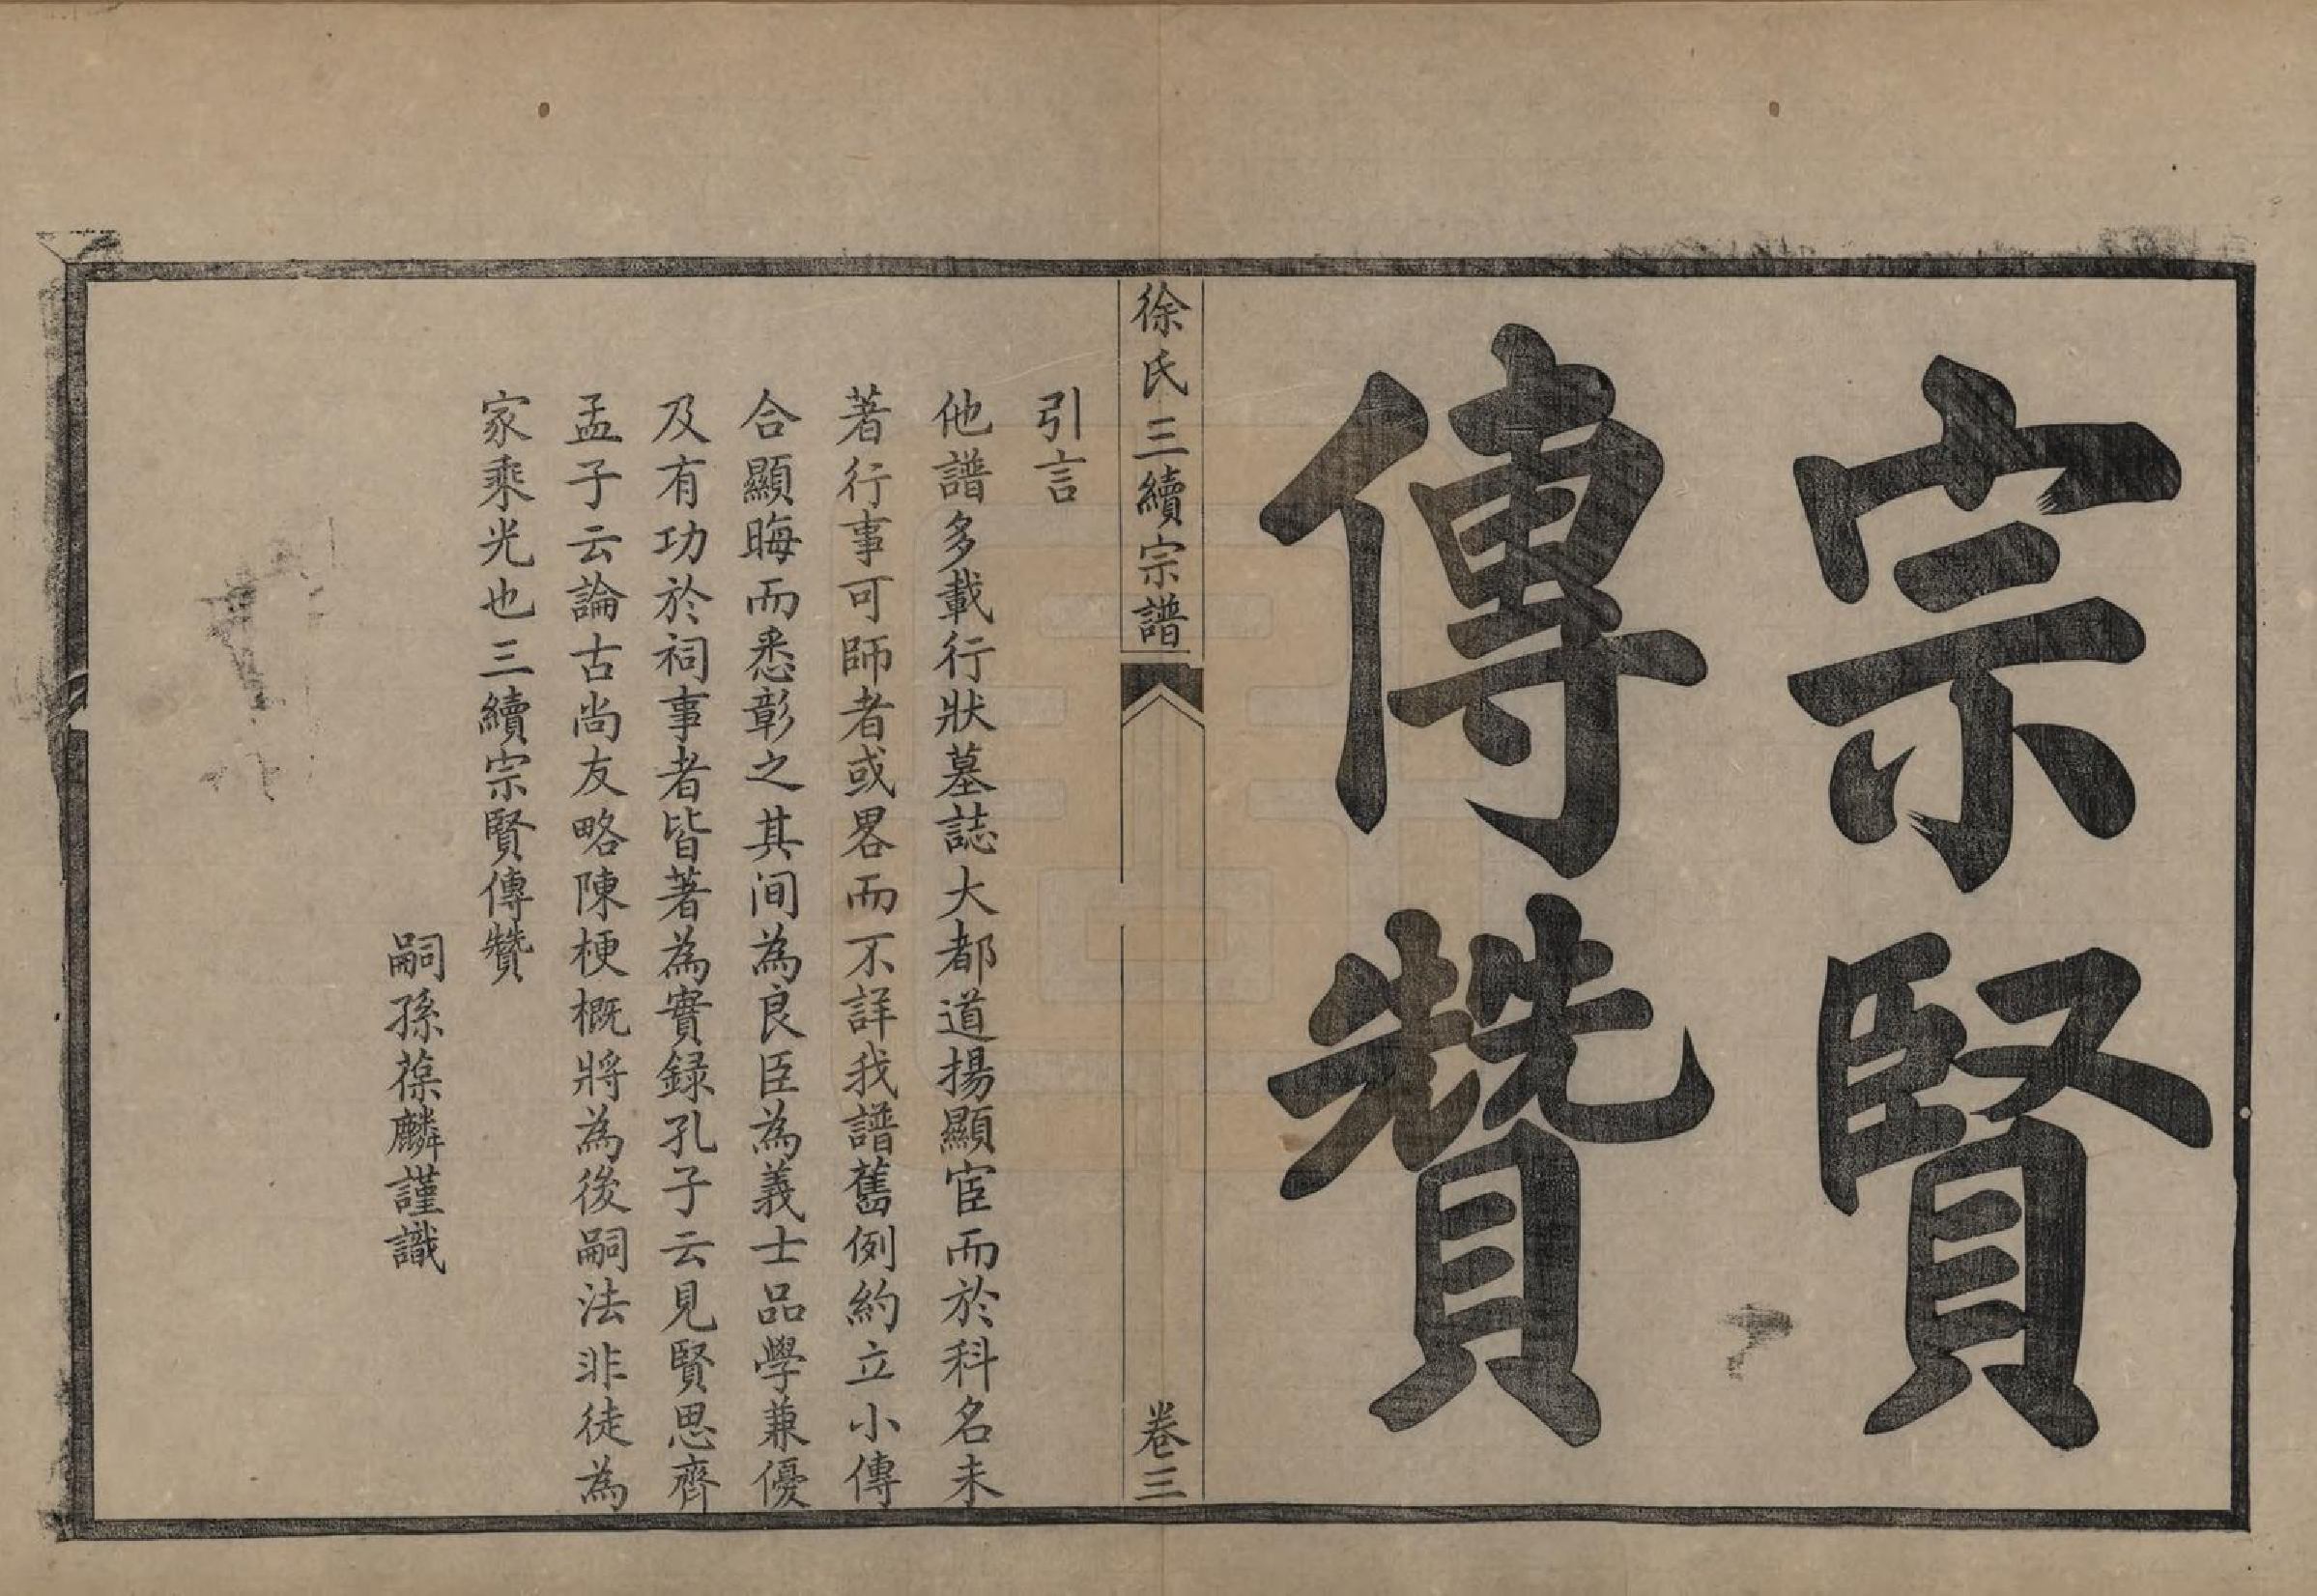 宗賢
傳贊
徐氏三續宗譜
卷三
引言
他譜多載行狀墓誌大都道揚顯宦而於科名未
著行事可師者或畧而不詳我譜舊例約立小傳
合顯晦而悉彰之其間為良臣為義士品學兼優
及有功於祠事者皆著為實録孔子云見賢思齊
孟子云論古尚友略陳梗概將為後嗣法非徒為
家乘光也三續宗賢傳贊
嗣孫葆麟謹識